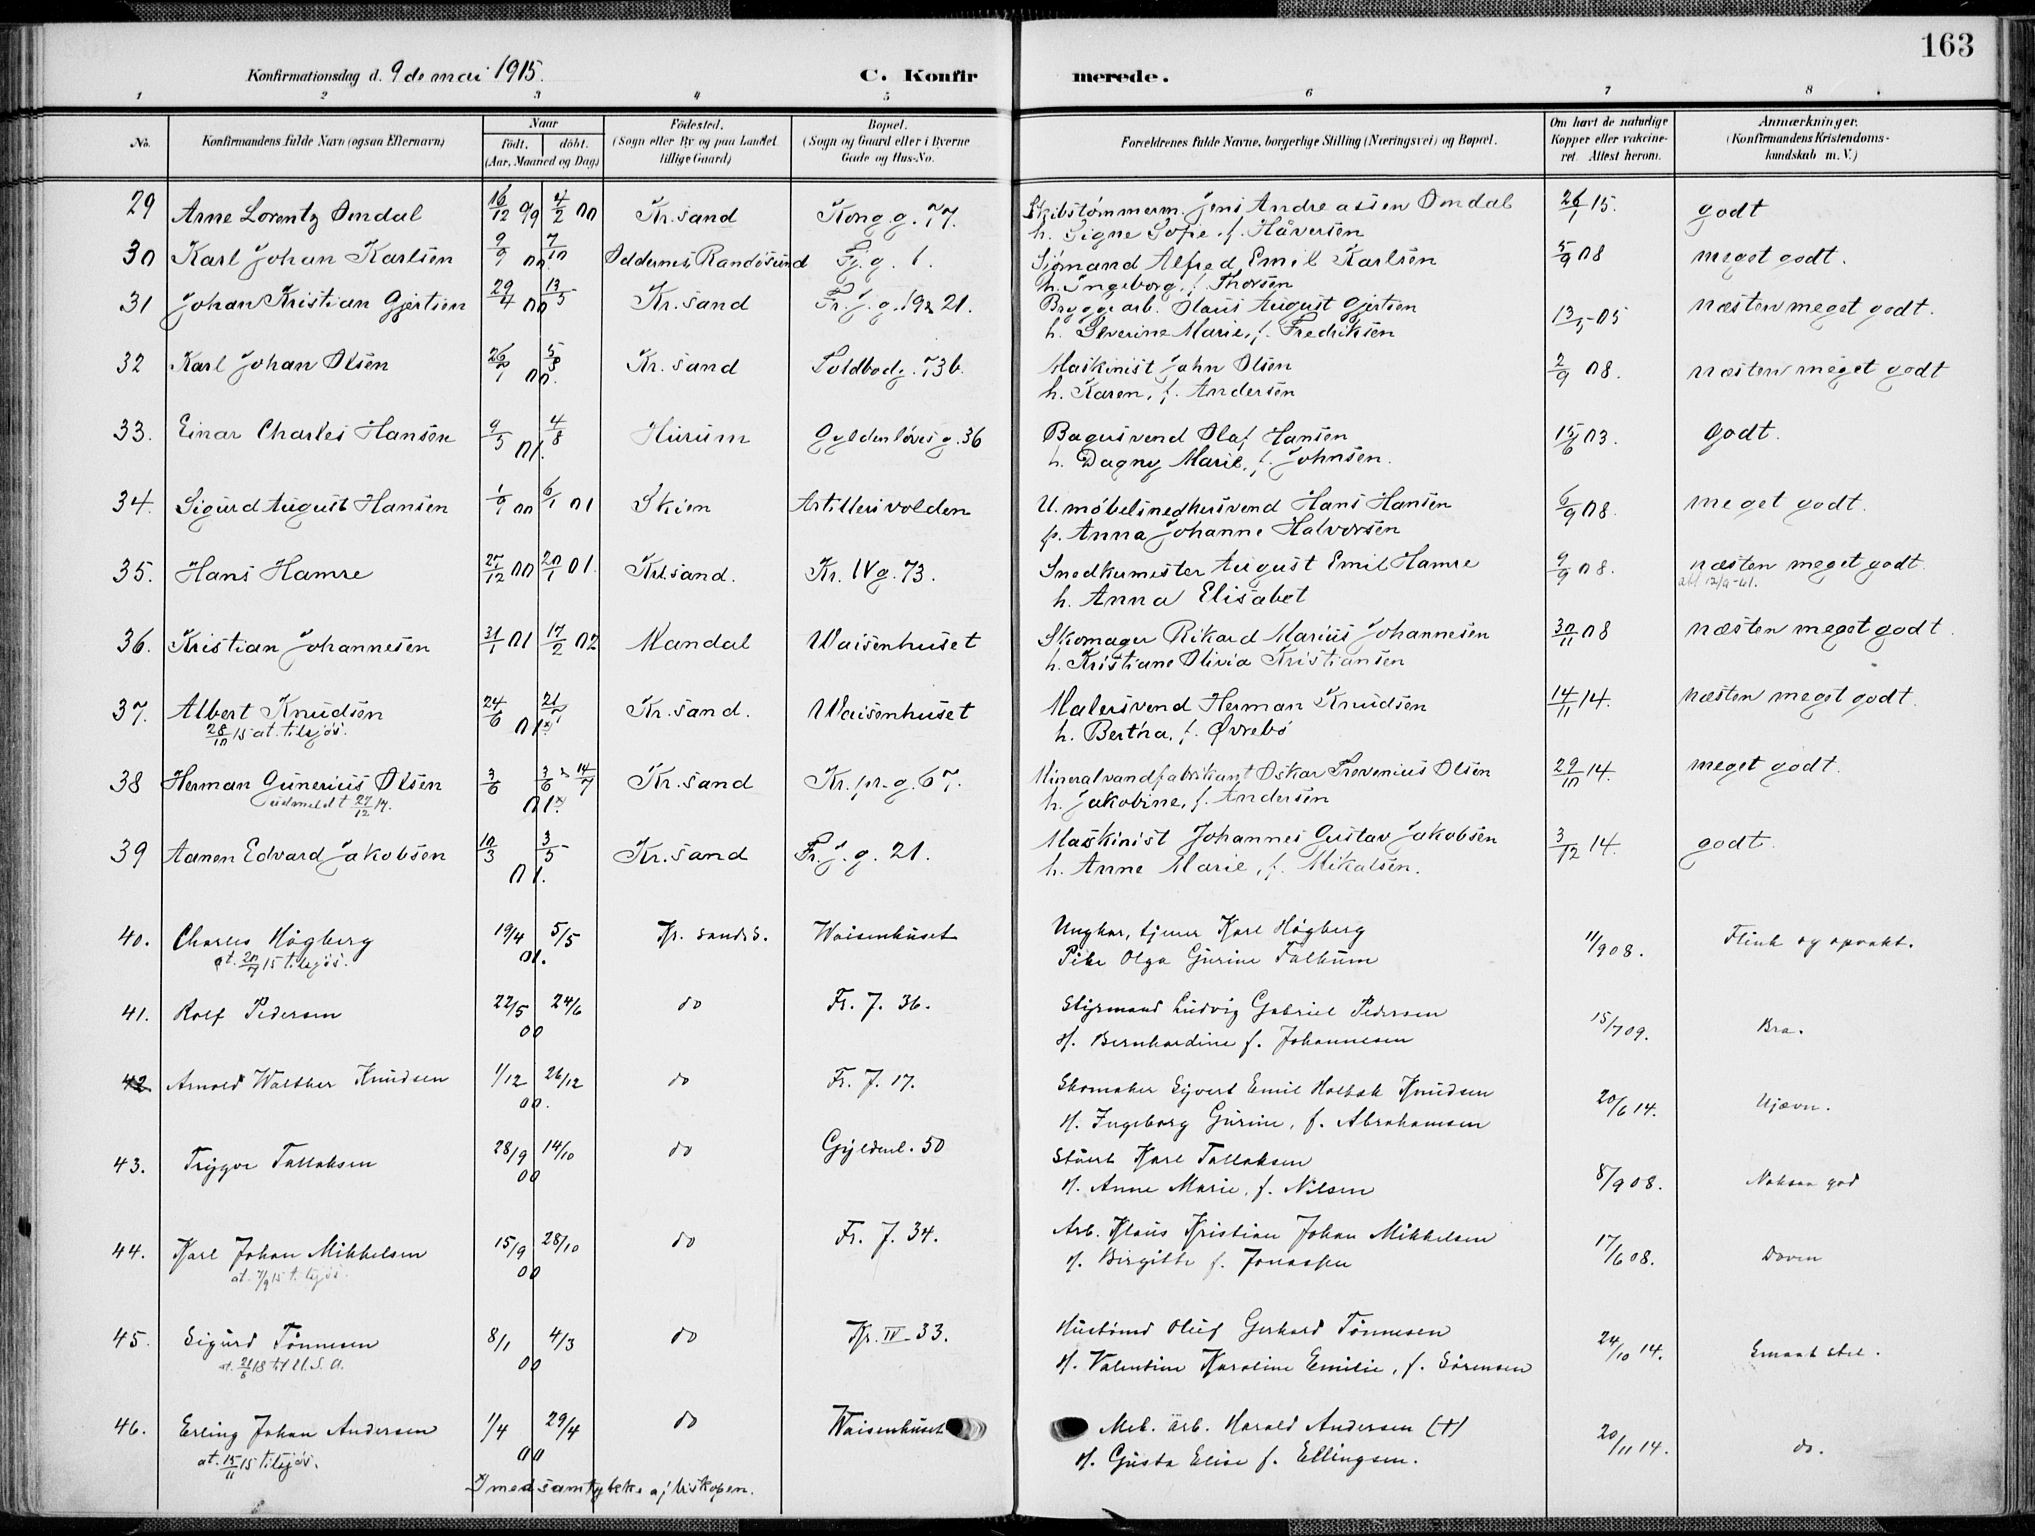 163
Konfirmationsdag d. 9de mai 1915.
C. Konfirmerede.
1 2 3 4 5 6 7 8
No. Konfirmandens fulde Navn (ogsaa Efternavn) Naar födt. döbt. (Aar, Maaned og Dag) Födested. (Sogn eller By og paa Landet tillige Gaard) Bopæl. (Sogn og Gaard eller i Byerne Gade og Hus-No. Forældrenes fulde Navne, borgerlige Stilling (Næringsvei) og Bopæl. Om havt de naturlige Kopper eller vakcineret. Attest herom. Anmærkninger. (Konfirmandens Kristendomskundskab m. V.)
29 Arne Lorentz Omdal 16/12 99 4/2 00 Kr.sand Kong g. 77. Skibstømmerm. Jens Andreassen Omdal 26/1 15. godt
h. Signe Sofie, f. Håversen
30 Karl Johan Karlsen 9/9 00. 7/10 Oddernes, Randösund Fj. g. 1. Sjømand Alfred Emil Karlsen 5/9 08 meget godt.
h. Ingeborg, f. Thorsen
31 Johan Kristian Gjertsen 29/4 00 13/5 Kr.sand Fr. J. g. 19 & 21. Bryggearb. Olaus August Gjertsen 13/5 05 næsten meget godt.
h. Severine Marie, f. Fredriksen
32 Karl Johan Olsen 26/1 00. 5/8 Kr.sand Soldbodg. 73b. Maskinist John Olsen 2/9 08. næsten meget godt
h. Karen, f. Andersen
33. Einar Charles Hansen 9/5 01. 4/8 Hurum Gyldenløvesg. 36 Bagersvend Olaf Hansen 15/6 03. Godt.
h. Dagny Marie, f. Johnsen.
34. Sigurd August Hansen 1/9 00 6/1 01 Skien Artillerivolden U. möbelsnedkersvend Hans Hansen 6/9 08. meget godt.
p. Anna Johanne Halvorsen
35. Hans Hamre 25/12 00 20/1 01. Kr.sand. Kr. IV g. 73. Snedkermester August Emil Hamre 9/9 08. næsten meget godt.
h. Anna Elisabet
36. Kristian Johannesen 31/1 01 17/2 02 Mandal Waisenhuset Skomager Rikard Marius Johannesen 30/11 08 næsten meget godt.
h. Kristiane Olivia Kristiansen
37. Albert Knudsen 24/6 01x) 21/7 Kr.sand. Waisenhuset Malersvend Herman Knudsen 14/11 14. næsten meget godt.
28/10 15 at. tilsjøs. h. Bertha, f. Øvrebø
38 Herman Gunerius Olsen 3/6 01x) 3/6 & 14/7 Kr.sand Kr. pr. g. 67. Mineralvandfabrikant Oskar Provenius Olsen 29/10 14. meget godt.
udmeldt 27/12 14. h. Jakobine, f. Andersen
39 Aanen Edvard Jakobsen 10/3 01. 3/5 Kr.sand Fr. J. g. 21. Maskinist Johannes Gustav Jakobsen 3/12 14. godt.
h. Anne Marie, f. Mikalsen.
40. Charles Högberg 19/4 01. 5/5 Kr. sand S. Waisenhuset Ungkar, tjener Karl Högberg 11/9 08. Flink og opvakt.
at. 20/7 15 tilsjøs. Pike Olga Gurine Falkum
41. Rolf Pedersen 22/5 00 24/6 do Fr. J. 36. Styrmand Ludvig Gabriel Pedersen 15/7 09. Bra.
H. Bernhardine f. Johannesen
42 Arnold Walther Knudsen 1/12 00. 26/12 do Fr. J. 17. Skomaker Sijvert Emil Holbæk Knudsen 20/6 14. Ujævn.
H. Ingeborg Gurine, f. Abrahamsen
43. Trygve Tallaksen 28/9 00 14/10 do Gyldenl. 50 Stuert Karl Tallaksen 8/9 08. Noksaa god
H. Anne Marie, f. Nilsen
44. Karl Johan Mikkelsen 15/9 00 28/10 do Fr. J. 34. Arb. Klaus Kristian Johan Mikkelsen 17/6 08. Doven
at. 7/9 15 t. sjøs. H. Birgitte f.
45. Sigurd Tönnesen 8/1 00 4/3 do Kr. IV 33. Husbond Oluf Gerhard Tönnesen 24/10 14. Smaat stel.
at. 21/6 18 til U.S.A. H. Valentine Karoline Emilie, f. Sörensen
46. Erling Johan Andersen 1/4 00 29/4 do Waisenhuset Mek. arb. Harald Andersen (†) 20/11 14. do.
at. 15/11 15 tilsjøs. H. Gusta Elise f. Ellingsen.
x) med samtykke af biskopen.